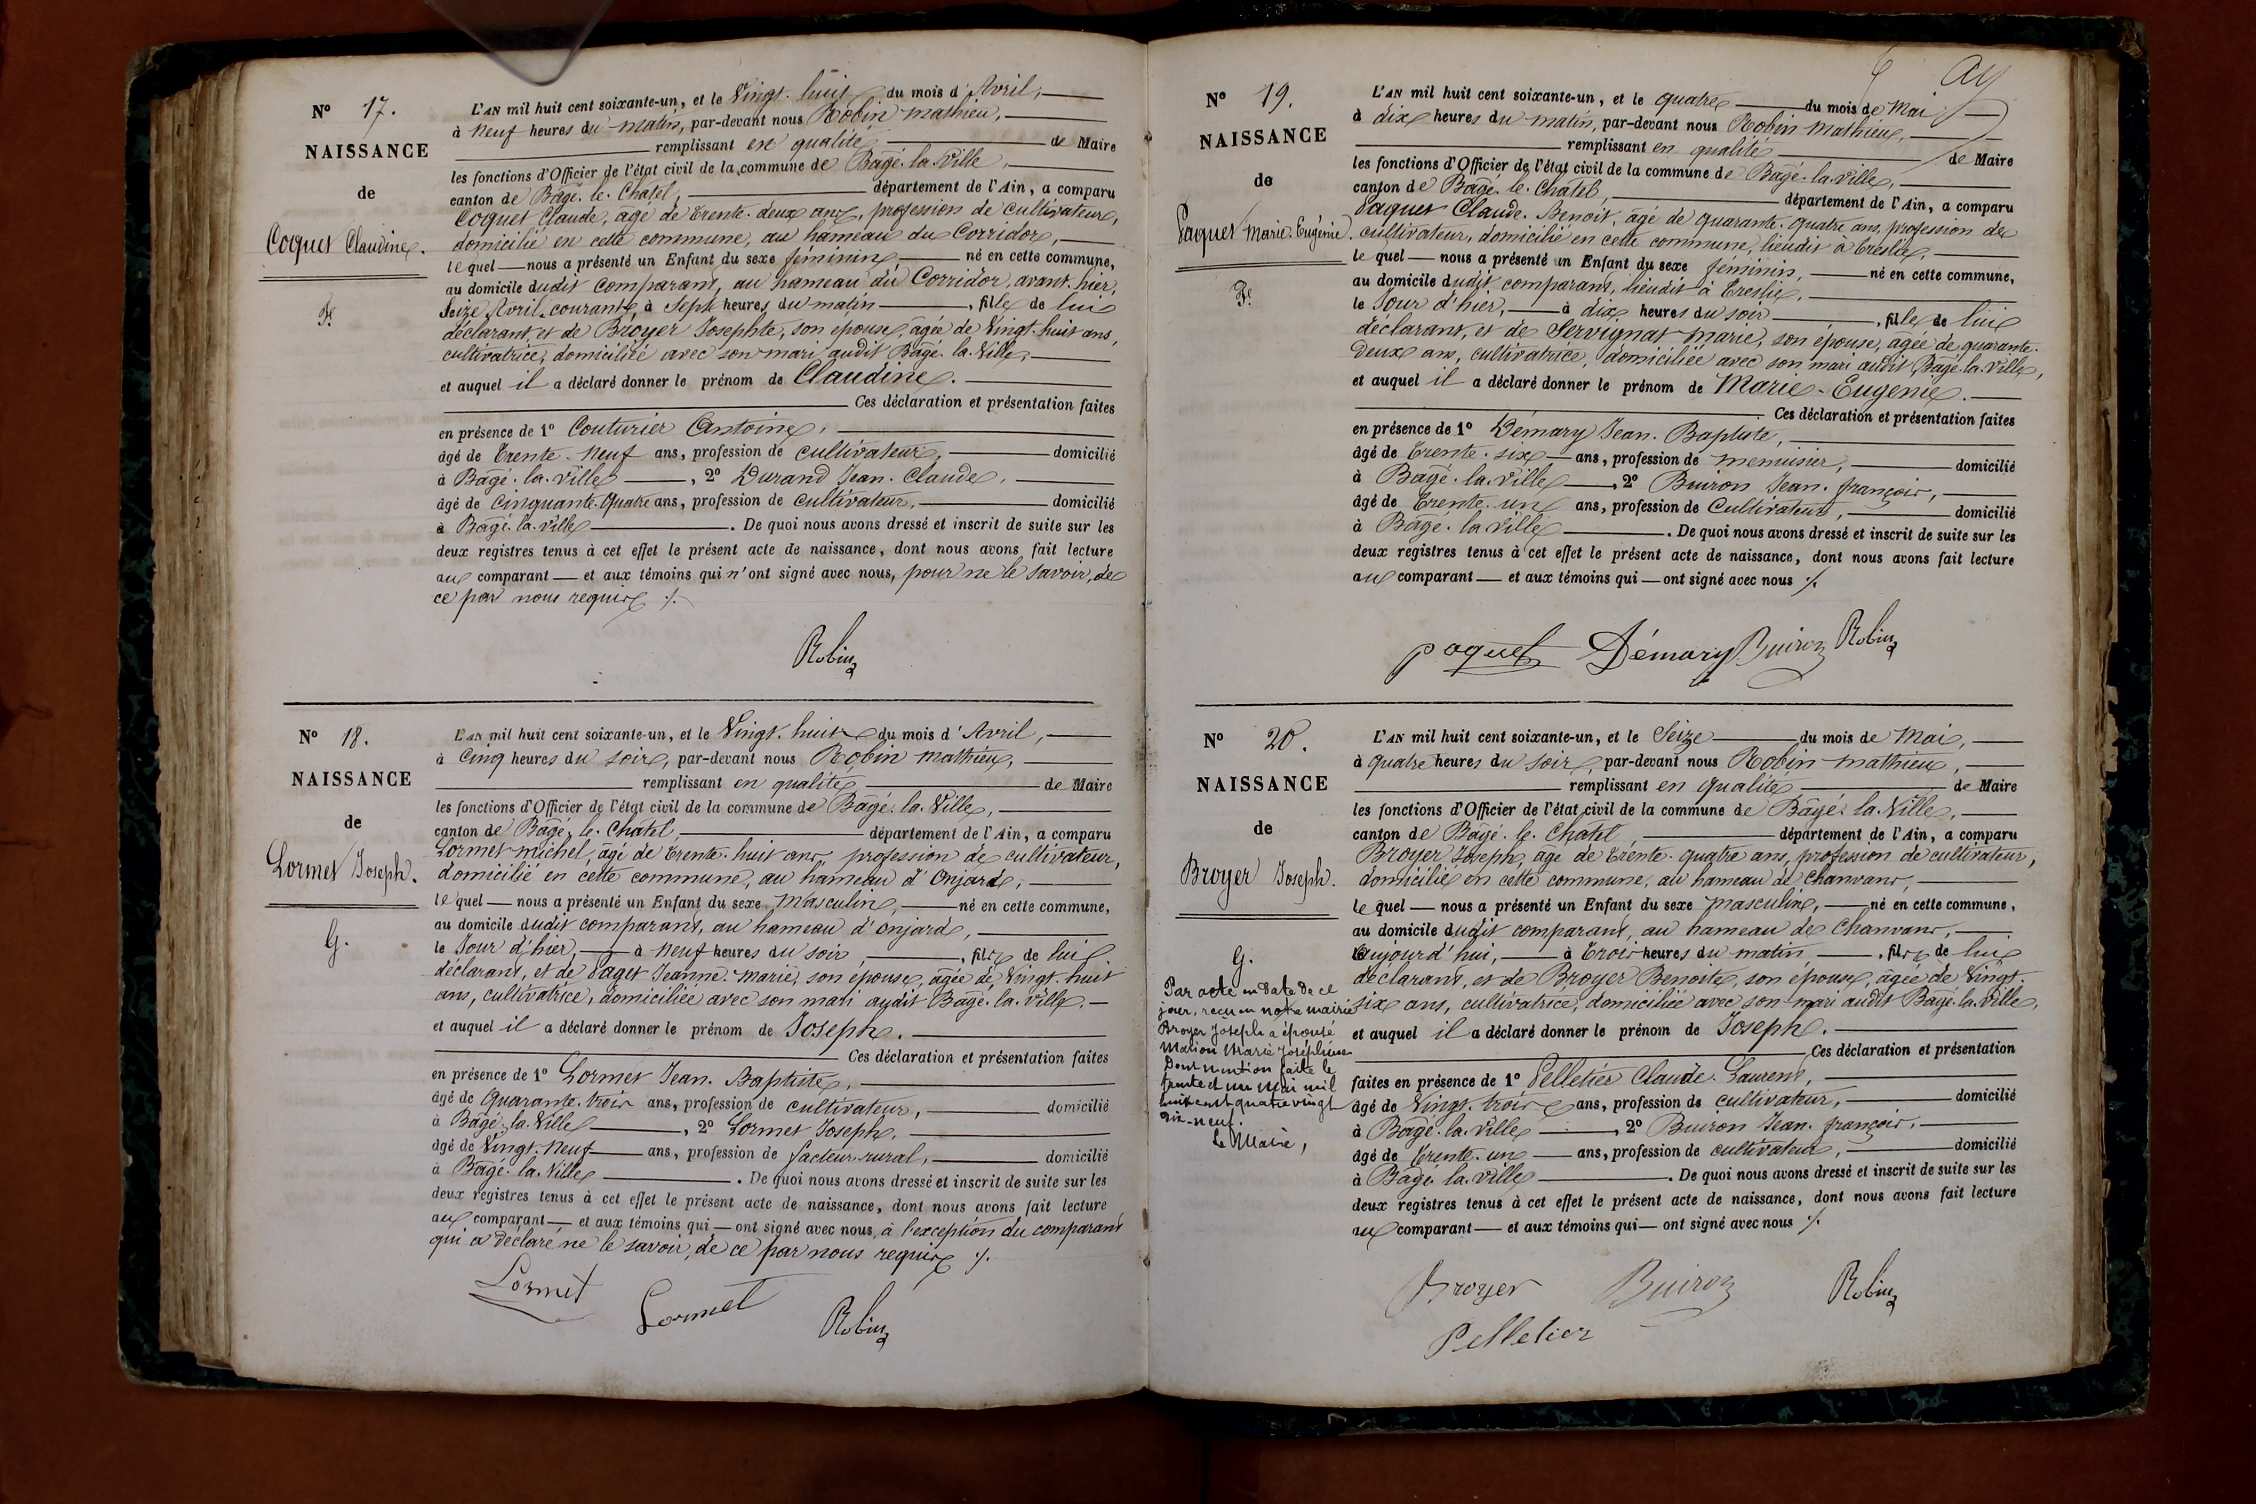 N° 17.
NAISSANCE
de
Coquet Claudine.
F.
L'AN mil huit cent soixante-un, et le Vingt-huit du mois d'Avril,
à neuf heures du matin, par-devant nous Robin Mathieu,
remplissant en qualité de Maire
les fonctions d'Officier de l'état civil de la commune de Bâgé-la-Ville,
canton de Bâgé-le-Chatel, département de l'Ain, a comparu
Coquet Claude, âgé de trente-deux ans, profession de cultivateur,
domicilié en cette commune, au hameau du Corridor,
lequel nous a présenté un Enfant du sexe féminin, né en cette commune,
au domicile dudit comparant, au hameau du Corridor, avant-hier,
Seize Avril courant, à Sept heures du matin, fille de lui
déclarant, et de Broyer Josephte, son épouse, âgée de Vingt-huit ans,
cultivatrice, domiciliée avec son mari audit Bâgé-la-Ville,
et auquel il a déclaré donner le prénom de Claudine.
Ces déclaration et présentation faites
en présence de 1° Couturier Antoine,
âgé de trente-neuf ans, profession de cultivateur, domicilié
à Bâgé-la-Ville, 2° Durand Jean-Claude,
âgé de cinquante-quatre ans, profession de cultivateur, domicilié
à Bâgé-la-Ville. De quoi nous avons dressé et inscrit de suite sur les
deux registres tenus à cet effet le présent acte de naissance, dont nous avons fait lecture
au comparant et aux témoins qui n'ont signé avec nous, pour ne le savoir, de
ce par nous requis ./.
Robin
N° 18.
NAISSANCE
de
Lormet Joseph.
G.
L'AN mil huit cent soixante-un, et le Vingt-huit du mois d'Avril,
à Cinq heures du soir, par-devant nous Robin Mathieu,
remplissant en qualité de Maire
les fonctions d'Officier de l'état civil de la commune de Bâgé-la-Ville,
canton de Bâgé-le-Chatel, département de l'Ain, a comparu
Lormet Michel, âgé de trente-huit ans, profession de cultivateur,
domicilié en cette commune, au hameau d'Onjard,
lequel nous a présenté un Enfant du sexe Masculin, né en cette commune,
au domicile dudit comparant, au hameau d'Onjard,
le Jour d'hier, à neuf heures du soir, fils de lui
déclarant, et de Paget Jeanne-Marie, son épouse, âgée de Vingt-huit
ans, cultivatrice, domiciliée avec son mari audit Bâgé-la-Ville,
et auquel il a déclaré donner le prénom de Joseph.
Ces déclaration et présentation faites
en présence de 1° Lormet Jean-Baptiste,
âgé de Quarante-trois ans, profession de cultivateur, domicilié
à Bâgé-la-Ville, 2° Lormet Joseph,
âgé de Vingt-neuf ans, profession de facteur-rural, domicilié
à Bâgé-la-Ville. De quoi nous avons dressé et inscrit de suite sur les
deux registres tenus à cet effet le présent acte de naissance, dont nous avons fait lecture
au comparant et aux témoins qui ont signé avec nous, à l'exception du comparant
qui a déclaré ne le savoir, de ce par nous requis ./.
Lormet Lormet Robin
N° 19.
NAISSANCE
de
Paquet Marie-Eugénie.
F.
L'AN mil huit cent soixante-un, et le quatre du mois de Mai
à dix heures du matin, par-devant nous Robin Mathieu,
remplissant en qualité de Maire
les fonctions d'Officier de l'état civil de la commune de Bâgé-la-Ville,
canton de Bâgé-le-Chatel, département de l'Ain, a comparu
Paquet Claude-Benoit, âgé de quarante-quatre ans, profession de
cultivateur, domicilié en cette commune, lieudit à Creslie,
lequel nous a présenté un Enfant du sexe féminin, né en cette commune,
au domicile dudit comparant, lieudit à Creslie,
le Jour d'hier, à dix heures du soir, fille de lui
déclarant, et de Servignat Marie, son épouse, âgée de quarante-
deux ans, cultivatrice, domiciliée avec son mari audit Bâgé-la-Ville,
et auquel il a déclaré donner le prénom de Marie-Eugénie.
Ces déclaration et présentation faites
en présence de 1° Démary Jean-Baptiste,
âgé de trente-six ans, profession de menuisier, domicilié
à Bâgé-la-Ville, 2° Buiron Jean-françois,
âgé de trente-un ans, profession de Cultivateur, domicilié
à Bâgé-la-Ville. De quoi nous avons dressé et inscrit de suite sur les
deux registres tenus à cet effet le présent acte de naissance, dont nous avons fait lecture
au comparant et aux témoins qui ont signé avec nous ./.
paquet Démary Buiron Robin
N° 20.
NAISSANCE
de
Broyer Joseph.
G.
Par acte en date de ce
jour, reçu en notre mairie
Broyer Joseph a épousé
Marion Marie Joséphine
Dont mention faite le
trente et un Mai mil
huit cent quatre vingt
dix-neuf.
Le Maire,
L'AN mil huit cent soixante-un, et le Seize du mois de Mai,
à quatre heures du soir, par-devant nous Robin Mathieu,
remplissant en qualité de Maire
les fonctions d'Officier de l'état civil de la commune de Bâgé-la-Ville,
canton de Bâgé-le-Chatel, département de l'Ain, a comparu
Broyer Joseph, âgé de trente-quatre ans, profession de cultivateur,
domicilié en cette commune, au hameau de Chanvans,
lequel nous a présenté un Enfant du sexe masculin, né en cette commune,
au domicile dudit comparant, au hameau de Chanvans,
aujourd'hui, à trois heures du matin, fils de lui
déclarant, et de Broyer Benoite, son épouse, âgée de Vingt-
six ans, cultivatrice, domiciliée avec son mari audit Bâgé-la-Ville,
et auquel il a déclaré donner le prénom de Joseph.
Ces déclaration et présentation
faites en présence de 1° Pelletier Claude-Laurent,
âgé de Vingt-trois ans, profession de cultivateur, domicilié
à Bâgé-la-Ville, 2° Buiron Jean-françois,
âgé de trente-un ans, profession de cultivateur, domicilié
à Bâgé-la-Ville. De quoi nous avons dressé et inscrit de suite sur les
deux registres tenus à cet effet le présent acte de naissance, dont nous avons fait lecture
au comparant et aux témoins qui ont signé avec nous ./.
Broyer Buiron Robin
Pelletier